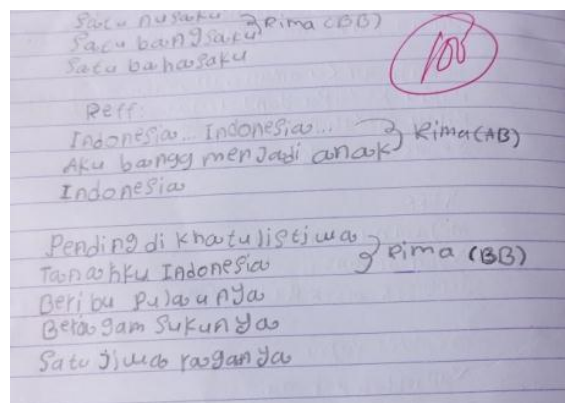 Satu nusaku Rima (BB)
Satu bangsaku
Satu bahasaku
100
Reff:
Indonesia... Indonesia... Rima (AB)
Aku bangg menjadi anak
Indonesia
Pending di khatulistiwa Rima (BB)
Tanahku Indonesia
Beribu Pulaunya
Beragam Sukunya
Satu jiwa raganya